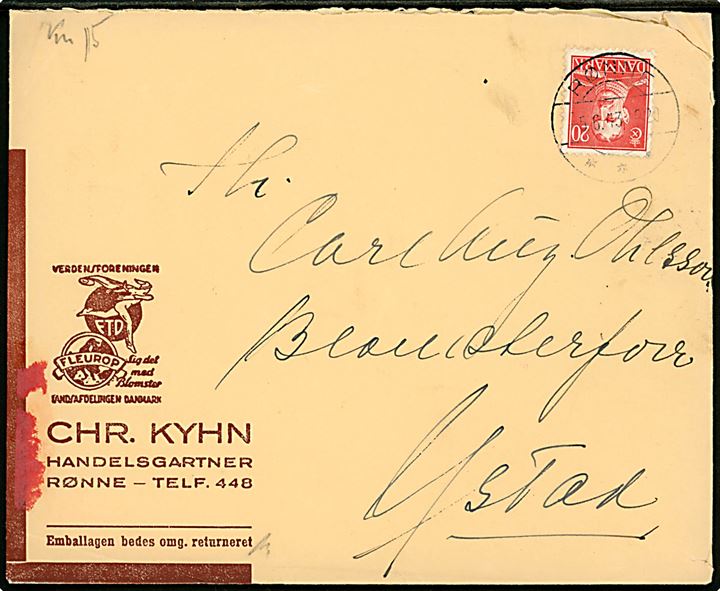 DANMARK
20
RØNNE
Hr.
Carl Aug. Ohlsson
Blomsterforr
Ystad
VERDENSFORENINGEN
FTD
FLEUROP
Sig det
med
Blomster
LANDSAFDELINGEN DANMARK
CHR. KYHN
HANDELSGARTNER
RØNNE – TELF. 448
Emballagen bedes omg. returneret